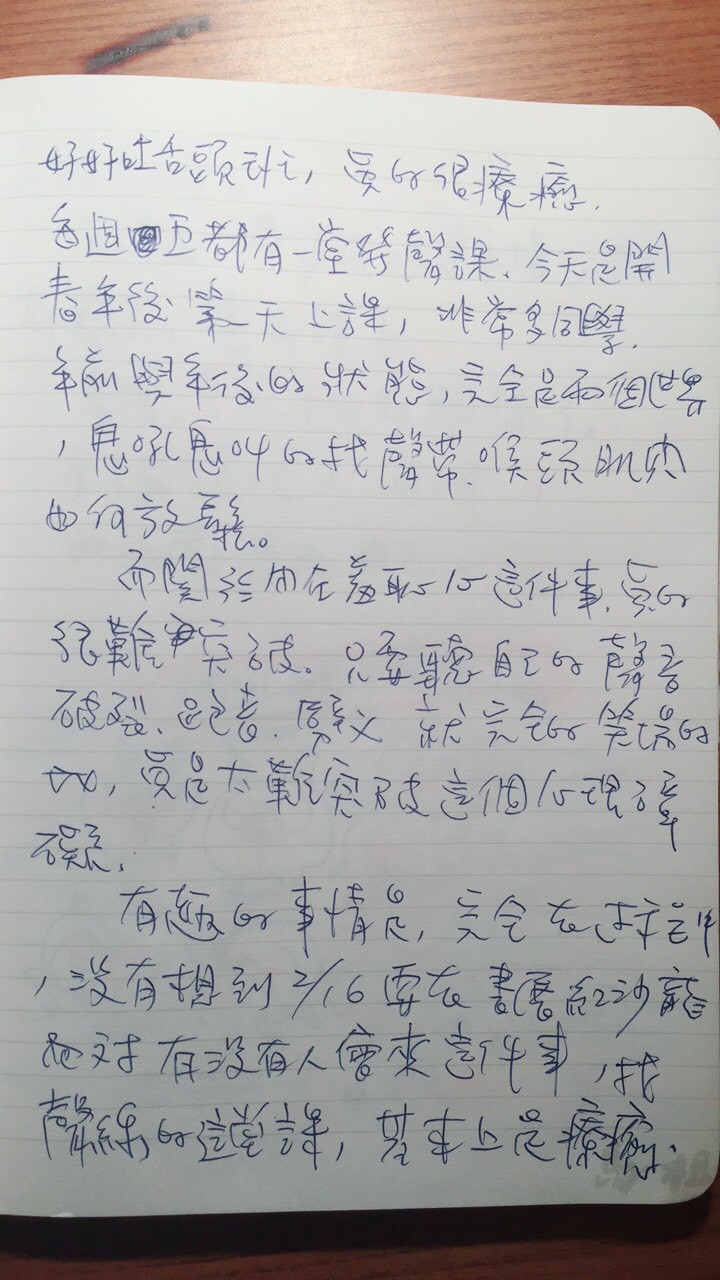 好好吐舌頭, 真的很療癒.
每週五都有一堂發聲課、今天是開
春年後第一天上課, 非常多同學.
年前與年後的狀態, 完全是兩個世界
, 鬼吼鬼叫的找聲帶、喉頭肌肉
如何放鬆。
而關於內在羞恥心這件事、真的
很難突破。只要聽自己的聲音
破裂、走音、就完全的笑場的
, 真是太難突破這個心理障
礙,
有趣的事情是, 完全在過年中
, 沒有想到 2/16 要在書展紅沙龍
面對有沒有人會來這件事, 找
聲線的這堂課, 基本上是療癒.